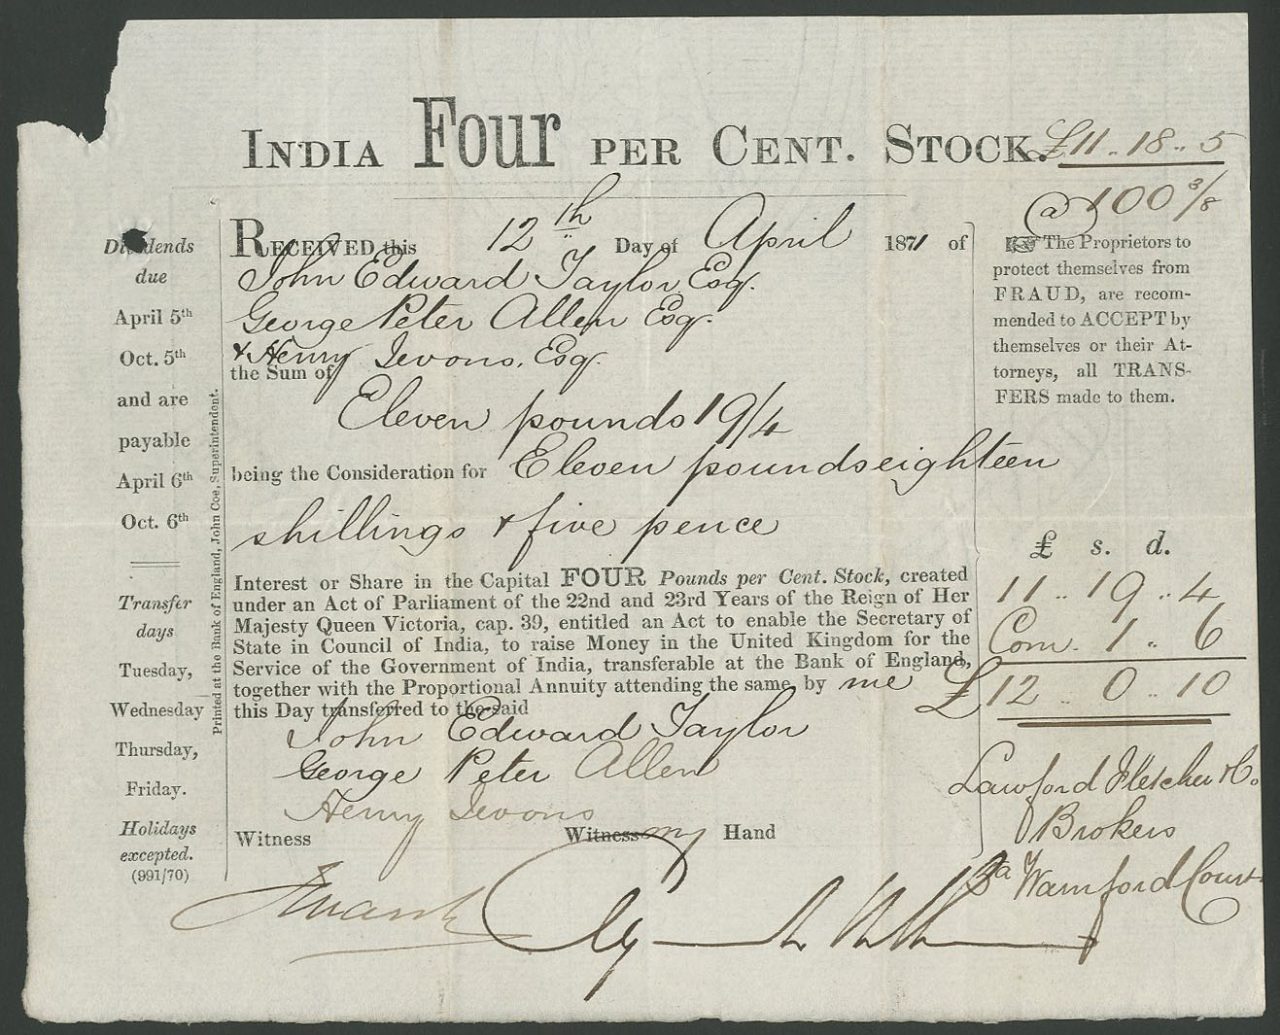 INDIA Four PER CENT. STOCK.
£11 .. 18 .. 5
@ 100 3/8
Dividends
due
April 5th
Oct. 5th
and are
payable
April 6th
Oct. 6th
Transfer
days
Tuesday,
Wednesday
Thursday,
Friday.
Holidays
excepted.
(991/70)
Printed at the Bank of England, John Coe, Superintendent.
RECEIVED this 12th Day of April 1871 of
John Edward Taylor Esq.
George Peter Allen Esq.
& Henry Jevons, Esq.
the Sum of
Eleven pounds 19/4
being the Consideration for Eleven pounds eighteen
shillings & five pence
Interest or Share in the Capital FOUR Pounds per Cent. Stock, created
under an Act of Parliament of the 22nd and 23rd Years of the Reign of Her
Majesty Queen Victoria, cap. 39, entitled an Act to enable the Secretary of
State in Council of India, to raise Money in the United Kingdom for the
Service of the Government of India, transferable at the Bank of England,
together with the Proportional Annuity attending the same, by me
this Day transferred to the said
John Edward Taylor
George Peter Allen
Henry Jevons
Witness Witness my Hand
The Proprietors to
protect themselves from
FRAUD, are recom-
mended to ACCEPT by
themselves or their At-
torneys, all TRANS-
FERS made to them.
£ s. d.
11 .. 19 .. 4
Com. 1 .. 6
£12 .. 0 .. 10
Lawford Fletcher & Co.
Brokers
3a Warnford Court